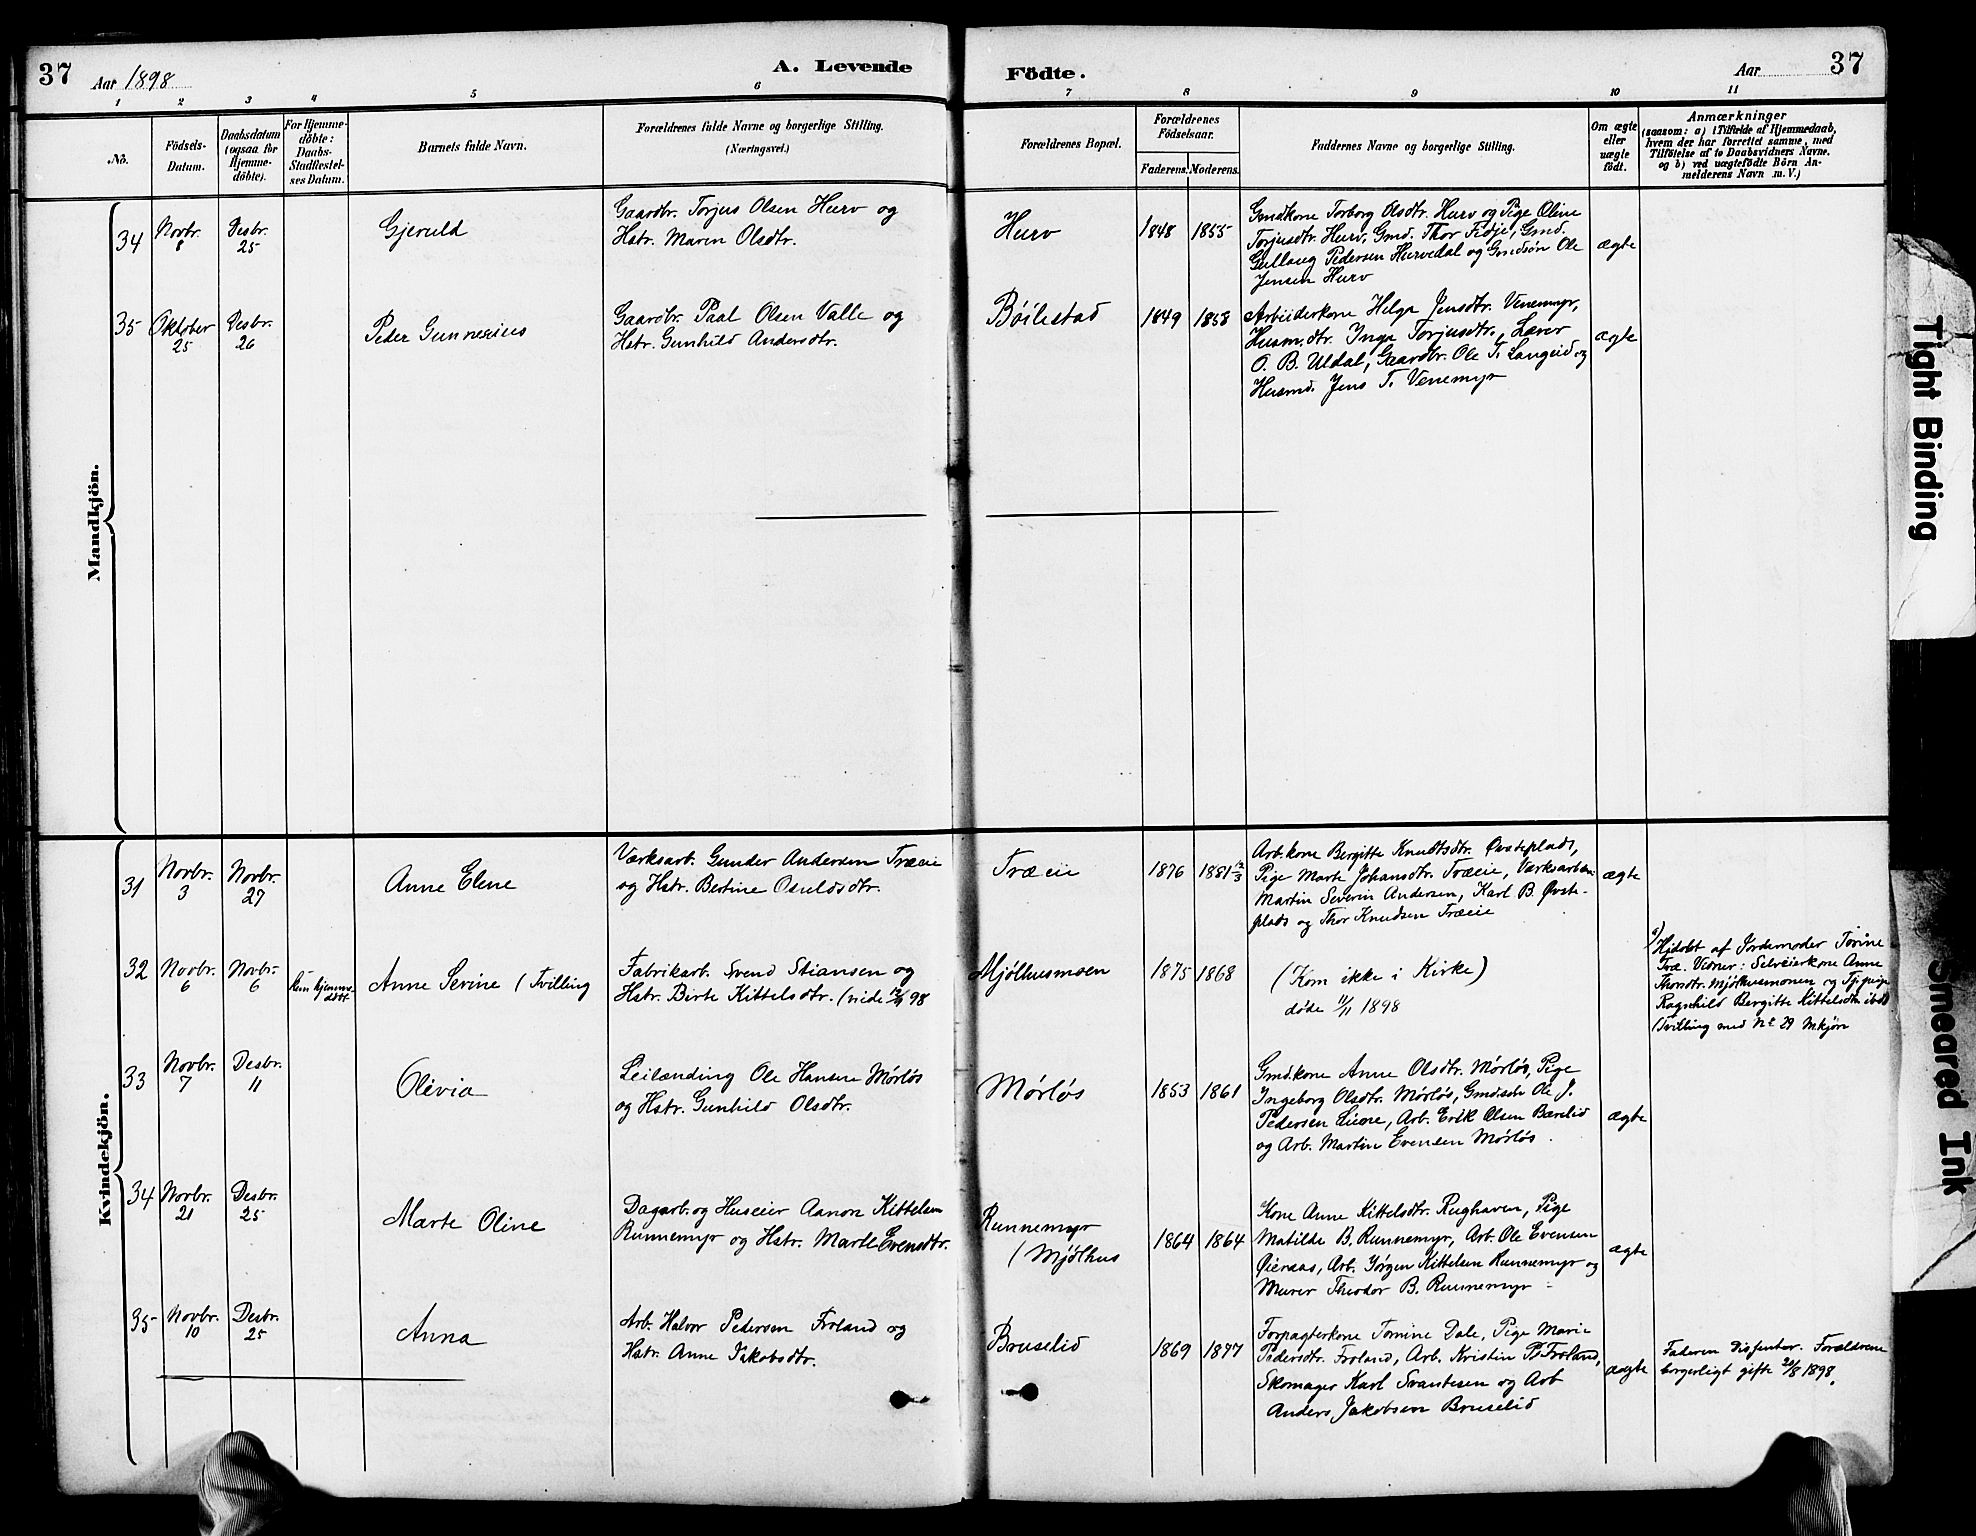 37
Aar 1898
A. Levende
Födte.
Aar
37
1 2 3 4 5 6 7 8 9 10 11
No.
Födsels-
Datum.
Daabsdatum
(ogsaa for
Hjemme-
döbte).
For Hjemme-
döbte:
Daabs-
Stadfæstel-
ses Datum.
Barnets fulde Navn.
Forældrenes fulde Navne og borgerlige Stilling.
(Næringsvei.)
Forældrenes Bopæl.
Forældrenes
Födselsaar.
Faderens. Moderens.
Faddernes Navne og borgerlige Stilling.
Om ægte
eller
uægte
födt.
Anmærkninger
(saasom: a) i Tilfælde af Hjemmedaab,
hvem der har forrettet samme, med
Tilföielse af to Daabsvidners Navne.
og b) ved uægtefödte Börn An-
melderens Navn m. V.)
Mandkjön.
34
Novbr.
8
Desbr.
25
Gjeruld
Gaardbr. Torjus Olsen Hurv og
Hstr. Maren Olsdtr.
Hurv
1848
1855
Gmdkone Torborg Olsdtr. Hurv og Pige Oline
Torjusdtr. Hurv, Gmd. Thor Fidje, Gmd.
Gullaug Pedersen Hurvedal og Gmdsøn Ole
Jensen Hurv
ægte
35
Oktober
25
Desbr.
26
Peder Gunnerius
Gaardbr. Paal Olsen Valle og
Hstr. Gunhild Andersdtr.
Bøilestad
1849
1858
Arbeiderkone Helga Jensdtr. Venemyr,
Husm.dtr. Inga Torjusdtr., Lærer
O. B. Uldal, Gaardbr. Ole T. Langeid og
Husmd. Jens T. Venemyr
ægte
Kvindekjön.
31
Novbr.
3
Novbr.
27
Anne Elene
Værksarb. Gunder Andersen Træeie
og Hstr. Bertine Osuldsdtr.
Træeie
1876
1881 12/3
Arb.kone Bergitte Knudtsdtr. Øvsteplads,
Pige Marte Johansdtr. Træeie, Værksarbeu
Martin Severin Andersen, Karl B. Øvste-
plads og Thor Knudsen Træeie
ægte
32
Novbr.
6
Novbr.
6
Kun hjemme-
døbt
Anne Serine (Tvilling
Fabrikarb. Svend Stiansen og
Hstr. Birte Kittelsdtr. (viede 12/4 98
Mjølhusmoen
1875
1868
(Kom ikke i Kirke)
døde 11/11 1898
a) Hjdøbt af Jordemoder Torine
Træ. Vidner: Selveierkone Anne
Thorsdtr. Mjølhusmonen og Tj.pige
Ragnhild Bergitte Kittelsdtr. ibd
(Tvilling med No 29 Mkjøn
33
Novbr.
7
Desbr.
11
Olivia
Leilænding Ole Hansen Mørløs
og Hstr. Gunhild Olsdtr.
Mørløs
1853
1861
Gmd.kone Anne Olsdtr. Mørløs, Pige
Ingeborg Olsdtr. Mørløs, Gmdssøn Ole J.
Pedersen Liene, Arb. Erik Olsen Bærelid
og Arb. Martin Evensen Mørløs.
ægte
34
Novbr.
21
Desbr.
25
Marte Oline
Dagarb. og Huseier Aanon Kittelsen
Runnemyr og Hstr. Marte Evensdtr.
Runnemyr
(Mjølhus
1864
1864
Kone Anne Kittelsdtr. Rughaven, Pige
Matilde B. Runnemyr, Arb. Ole Evensen
Øieraas, Arb. Jørgen Kittelsen Runnemyr og
Murer Theodor B. Runnemyr -
ægte
35
Novbr.
10
Desbr.
25
Anna
Arb. Halvor Pedersen Froland og
Hstr. Anne Jakobsdtr.
Bruselid
1869
1877
Forpagterkone Tomine Dale, Pige Marie
Pedersdtr. Froland, Arb. Kristin P. Froland,
Skomager Karl Svantesen og Arb
Anders Jakobsen Bruselid
ægte
Faderen Disfenter. Forældrene
borgerligt gifte 21/8 1898.
Tight Binding
Smeared Ink